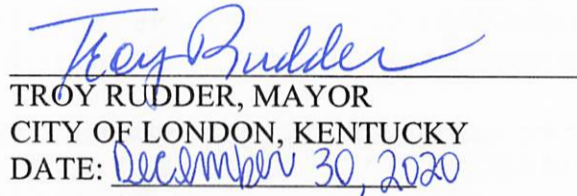 Troy Rudder
TROY RUDDER, MAYOR
CITY OF LONDON, KENTUCKY
DATE: December 30, 2020